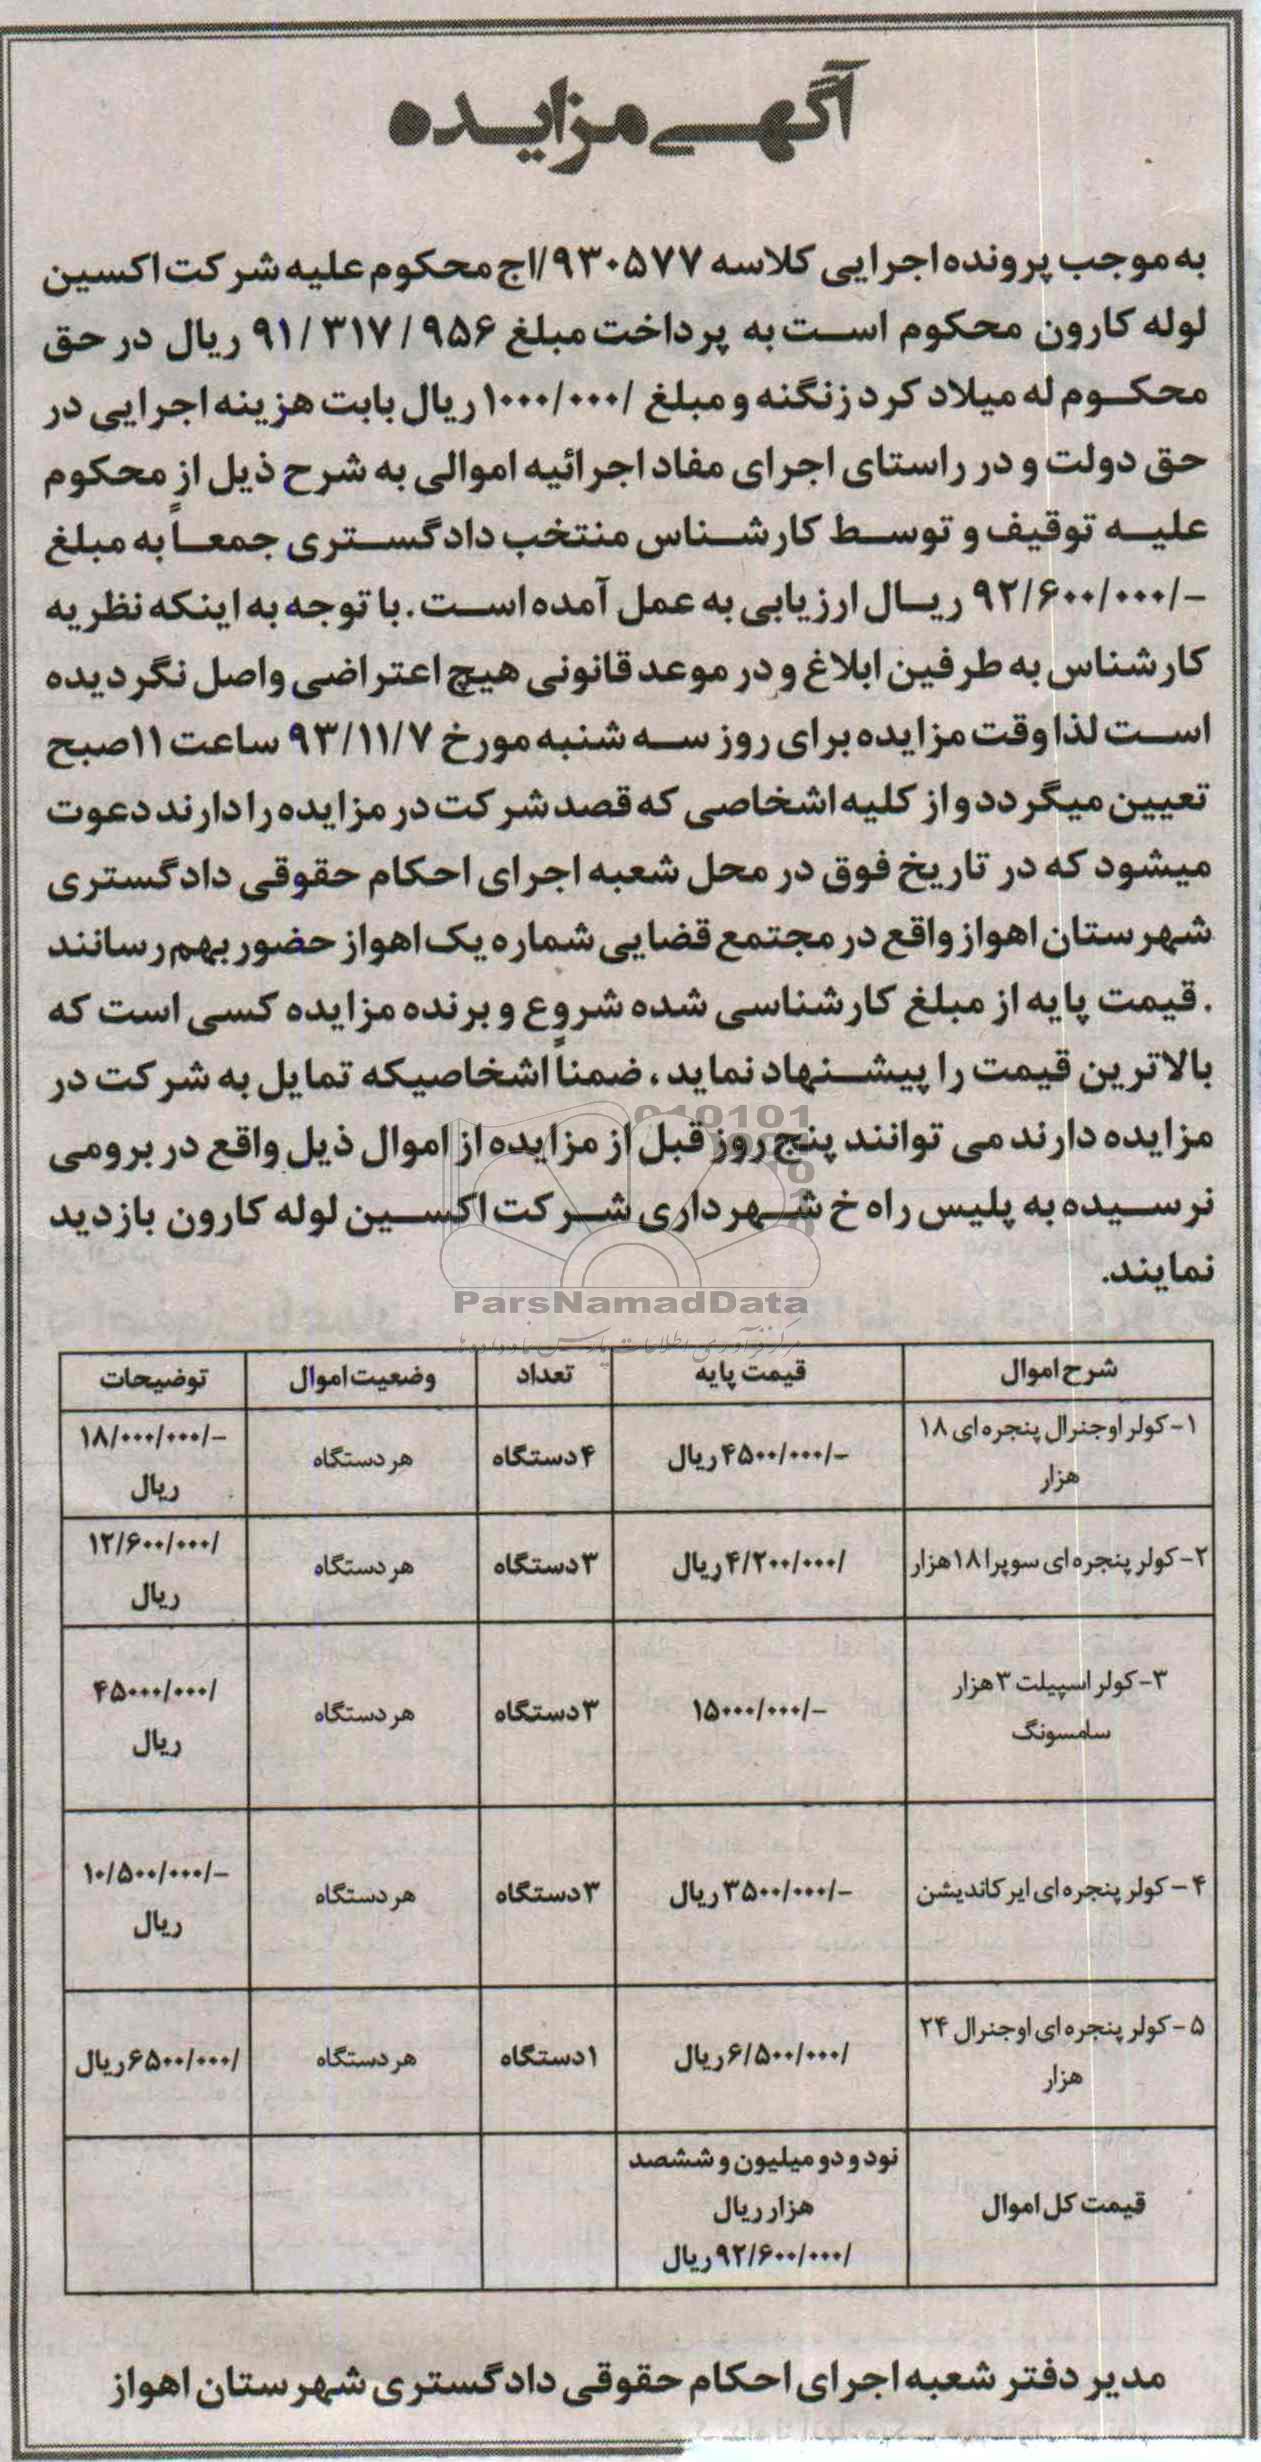 آگهی مزایده
به موجب پرونده اجرایی کلاسه ۹۳۰۵۷۷/اج محکوم علیه شرکت اکسین
لوله کارون محکوم است به پرداخت مبلغ ۹۱/۳۱۷/۹۵۶ ریال در حق
محکوم له میلاد کرد زنگنه و مبلغ /۱۰۰۰/۰۰۰ ریال بابت هزینه اجرایی در
حق دولت و در راستای اجرای مفاد اجرائیه اموالی به شرح ذیل از محکوم
علیه توقیف و توسط کارشناس منتخب دادگستری جمعاً به مبلغ
-/۹۲/۶۰۰/۰۰۰ ریال ارزیابی به عمل آمده است. با توجه به اینکه نظریه
کارشناس به طرفین ابلاغ و در موعد قانونی هیچ اعتراضی واصل نگردیده
است لذا وقت مزایده برای روز سه شنبه مورخ ۹۳/۱۱/۷ ساعت ۱۱صبح
تعیین میگردد و از کلیه اشخاصی که قصد شرکت در مزایده را دارند دعوت
میشود که در تاریخ فوق در محل شعبه اجرای احکام حقوقی دادگستری
شهرستان اهواز واقع در مجتمع قضایی شماره یک اهواز حضور بهم رسانند
. قیمت پایه از مبلغ کارشناسی شده شروع و برنده مزایده کسی است که
بالاترین قیمت را پیشنهاد نماید، ضمناً اشخاصیکه تمایل به شرکت در
مزایده دارند می توانند پنج روز قبل از مزایده از اموال ذیل واقع در برومی
نرسیده به پلیس راه خ شهرداری شرکت اکسین لوله کارون بازدید
نمایند.
ParsNamadData
مرکز فرآوری اطلاعات پارس نماد داده ها
شرح اموال قیمت پایه تعداد وضعیت اموال توضیحات
۱- کولر اوجنرال پنجره ای ۱۸ هزار -/۴۵۰۰/۰۰۰ ریال ۴ دستگاه هر دستگاه -/۱۸/۰۰۰/۰۰۰ ریال
۲- کولر پنجره ای سوپرا ۱۸هزار /۴/۲۰۰/۰۰۰ ریال ۳ دستگاه هر دستگاه /۱۲/۶۰۰/۰۰۰ ریال
۳- کولر اسپیلت ۳ هزار سامسونگ -/۱۵۰۰۰/۰۰۰ ۳ دستگاه هر دستگاه /۴۵۰۰۰/۰۰۰ ریال
۴- کولر پنجره ای ایر کاندیشن -/۳۵۰۰/۰۰۰ ریال ۳ دستگاه هر دستگاه -/۱۰/۵۰۰/۰۰۰ ریال
۵- کولر پنجره ای اوجنرال ۲۴ هزار /۶/۵۰۰/۰۰۰ ریال ۱ دستگاه هر دستگاه /۶۵۰۰/۰۰۰ ریال
قیمت کل اموال نود و دو میلیون و ششصد هزار ریال /۹۲/۶۰۰/۰۰۰ ریال
مدیر دفتر شعبه اجرای احکام حقوقی دادگستری شهرستان اهواز